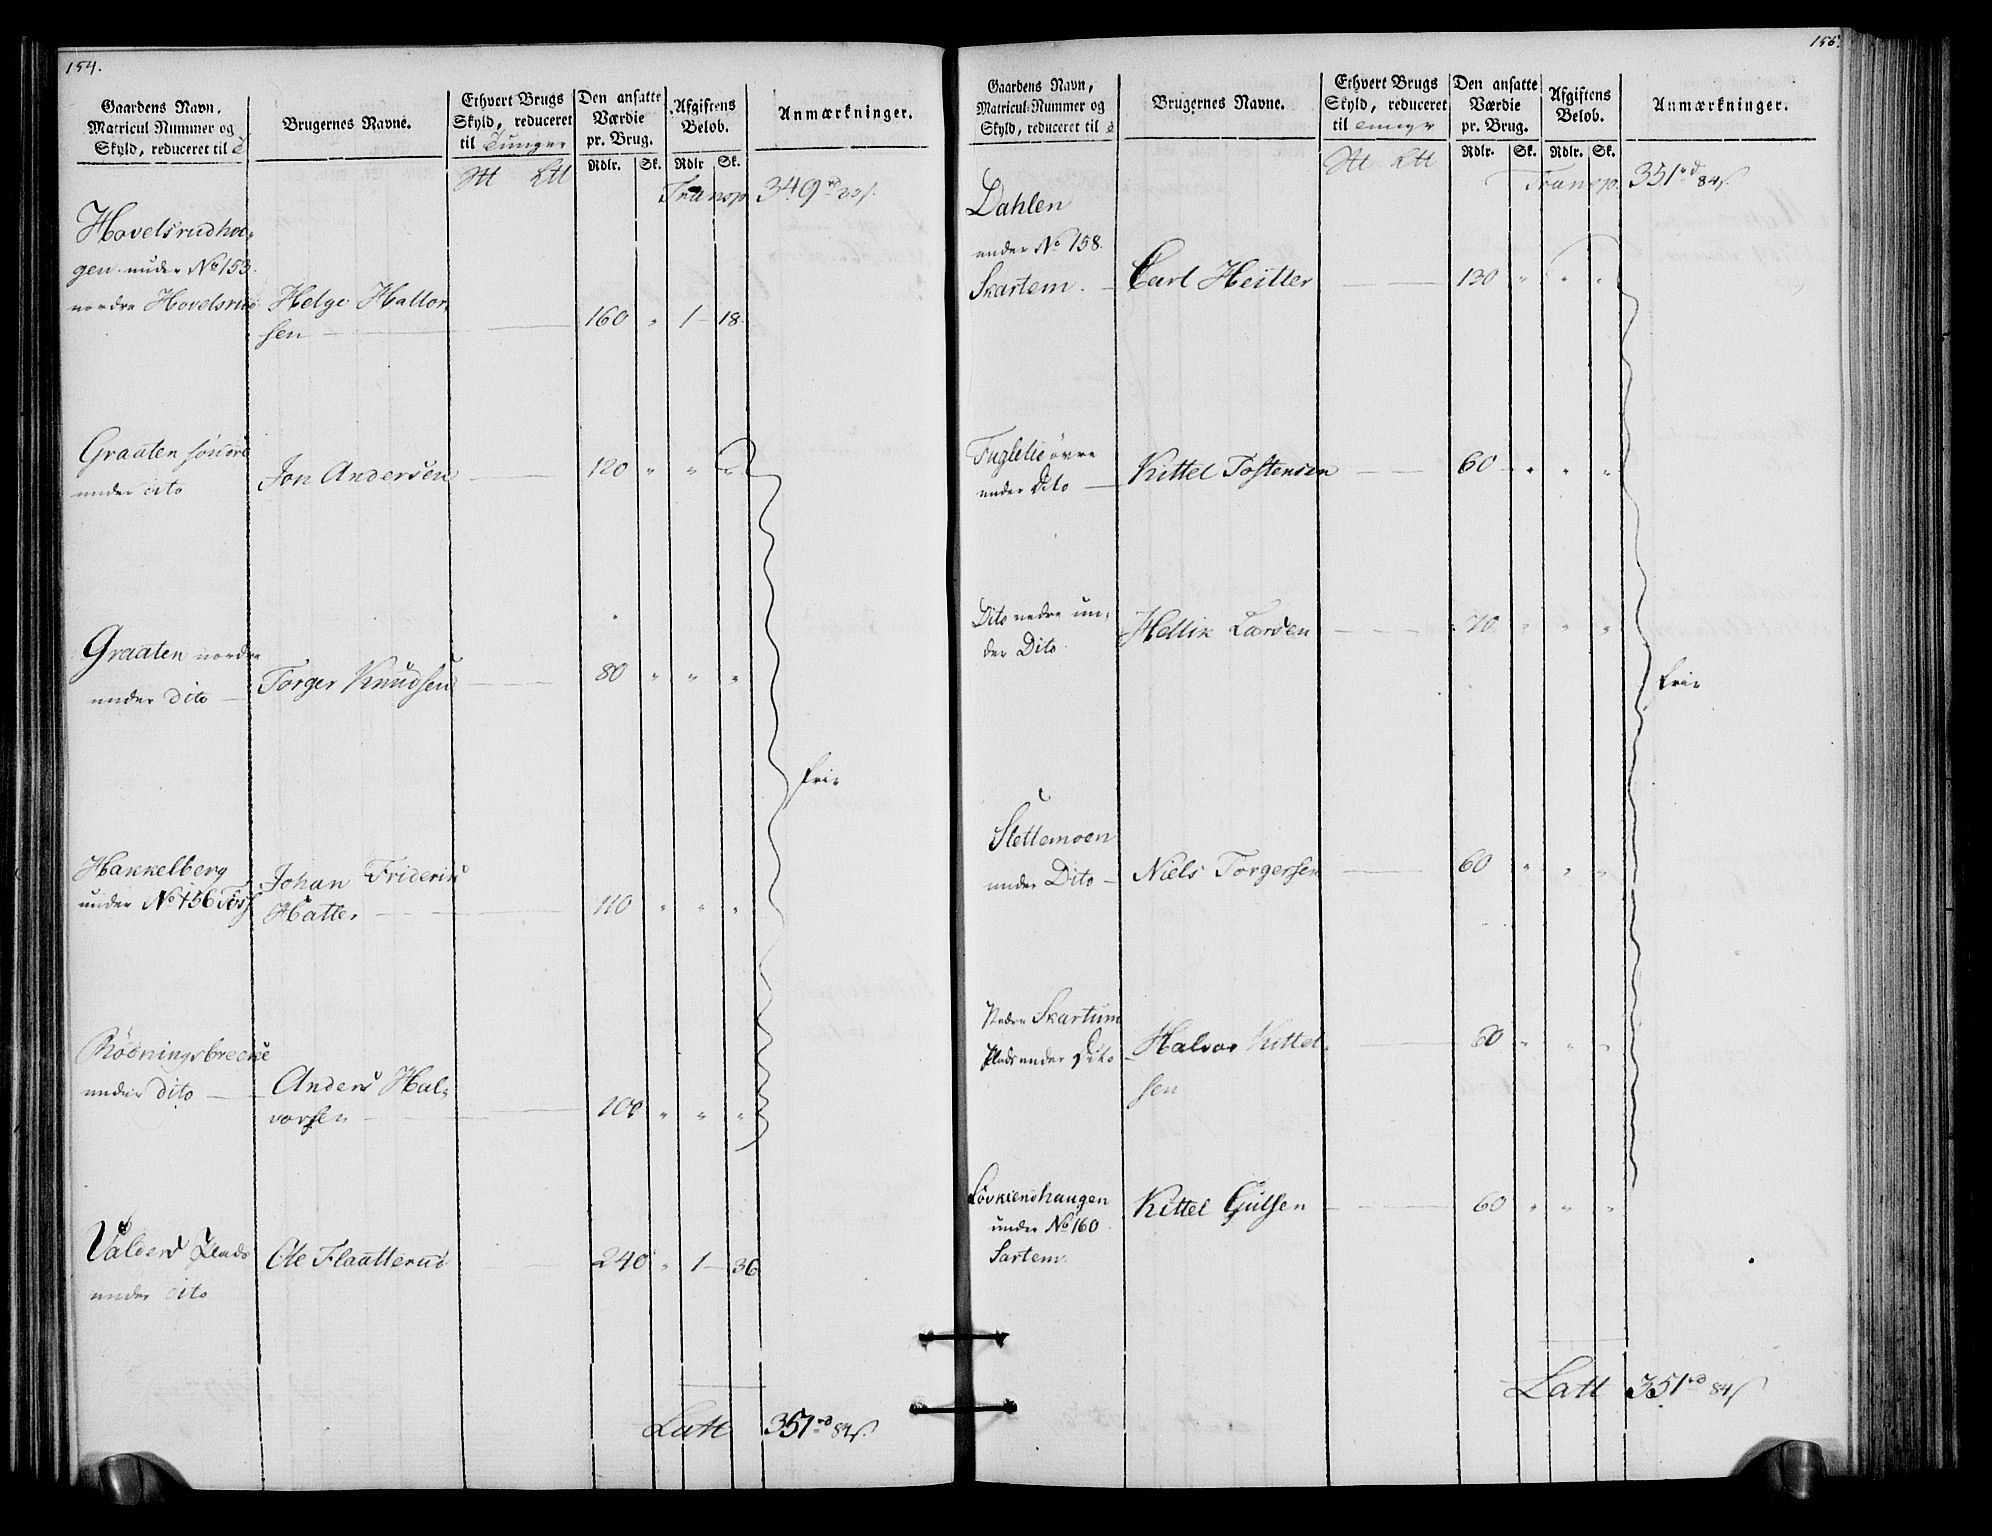 154.
Gaardens Navn,
Matricul Nummer og
Skyld, reduceret til
Brugernes Navne.
Ethvert Brugs
Skyld, reduceret
til Tunger
Den ansatte
Værdie
pr. Brug.
Rdlr. Sk.
Afgiftens
Beløb.
Rdlr Sk.
Anmærkninger.
Transp. 349
Hovelsrudhou-
gen under No 153.
nordre Hovelsrud Helge Haltor-
sen 160 " 1 - 18.
Graaten söndre
under dito Jon Andersen 120 " " "
Graaten nordre
under dito Torger Knudsen 80 " " "
frie
Hakkelberg Johan Friderik
under No 156 Hatter 110 " " "
Rödningsbrecke
under dito Anders Hal-
vorsen 100 " " "
Valders Plads Ole Flaatterud 240 " 1 - 36
under dito
Latt 351 rd 84 s.
155.
Gaardens Navn,
Matricul-Nummer og
Skyld, reduceret til
Brugernes Navne.
Ethvert Brugs
Skyld, reduceret
til Tunger
Den ansatte
Værdie
pr. Brug.
Rdlr. Sk.
Afgiftens
Beløb.
Rdlr. Sk.
Anmærkninger.
Transp. 351 rd 84 s.
Dahlen
under No 158.
Skartem. Carl Heitter 130 " " "
Fuglelie övre
under Dito Kittel Tostensen 60 " " "
Dito nedre un-
der Dito Hellik Larsen 70 " " "
frie
Slettemoen
under Dito Niels Torgersen 60 " " "
Nedre Skartum
Plads under Dito Halvor Kittel-
sen 60 " " "
Lövkiendhaugen Kittel Gulsen 60 " " "
under No 160
Sartem.
Latt 351 rd 84 s